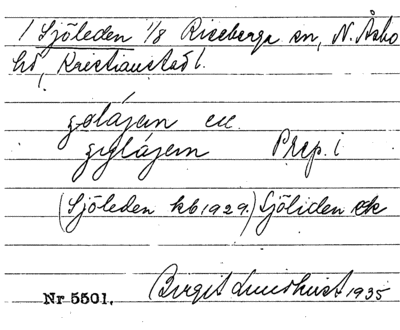 1 Sjöleden 1/8 Riseberga sn, N. Åsbo
hd, Kristianstad l.
Prep. i
(Sjöleden kb 1929.) Sjöliden ek
Nr 5501. Birgit Lundkvist 1935